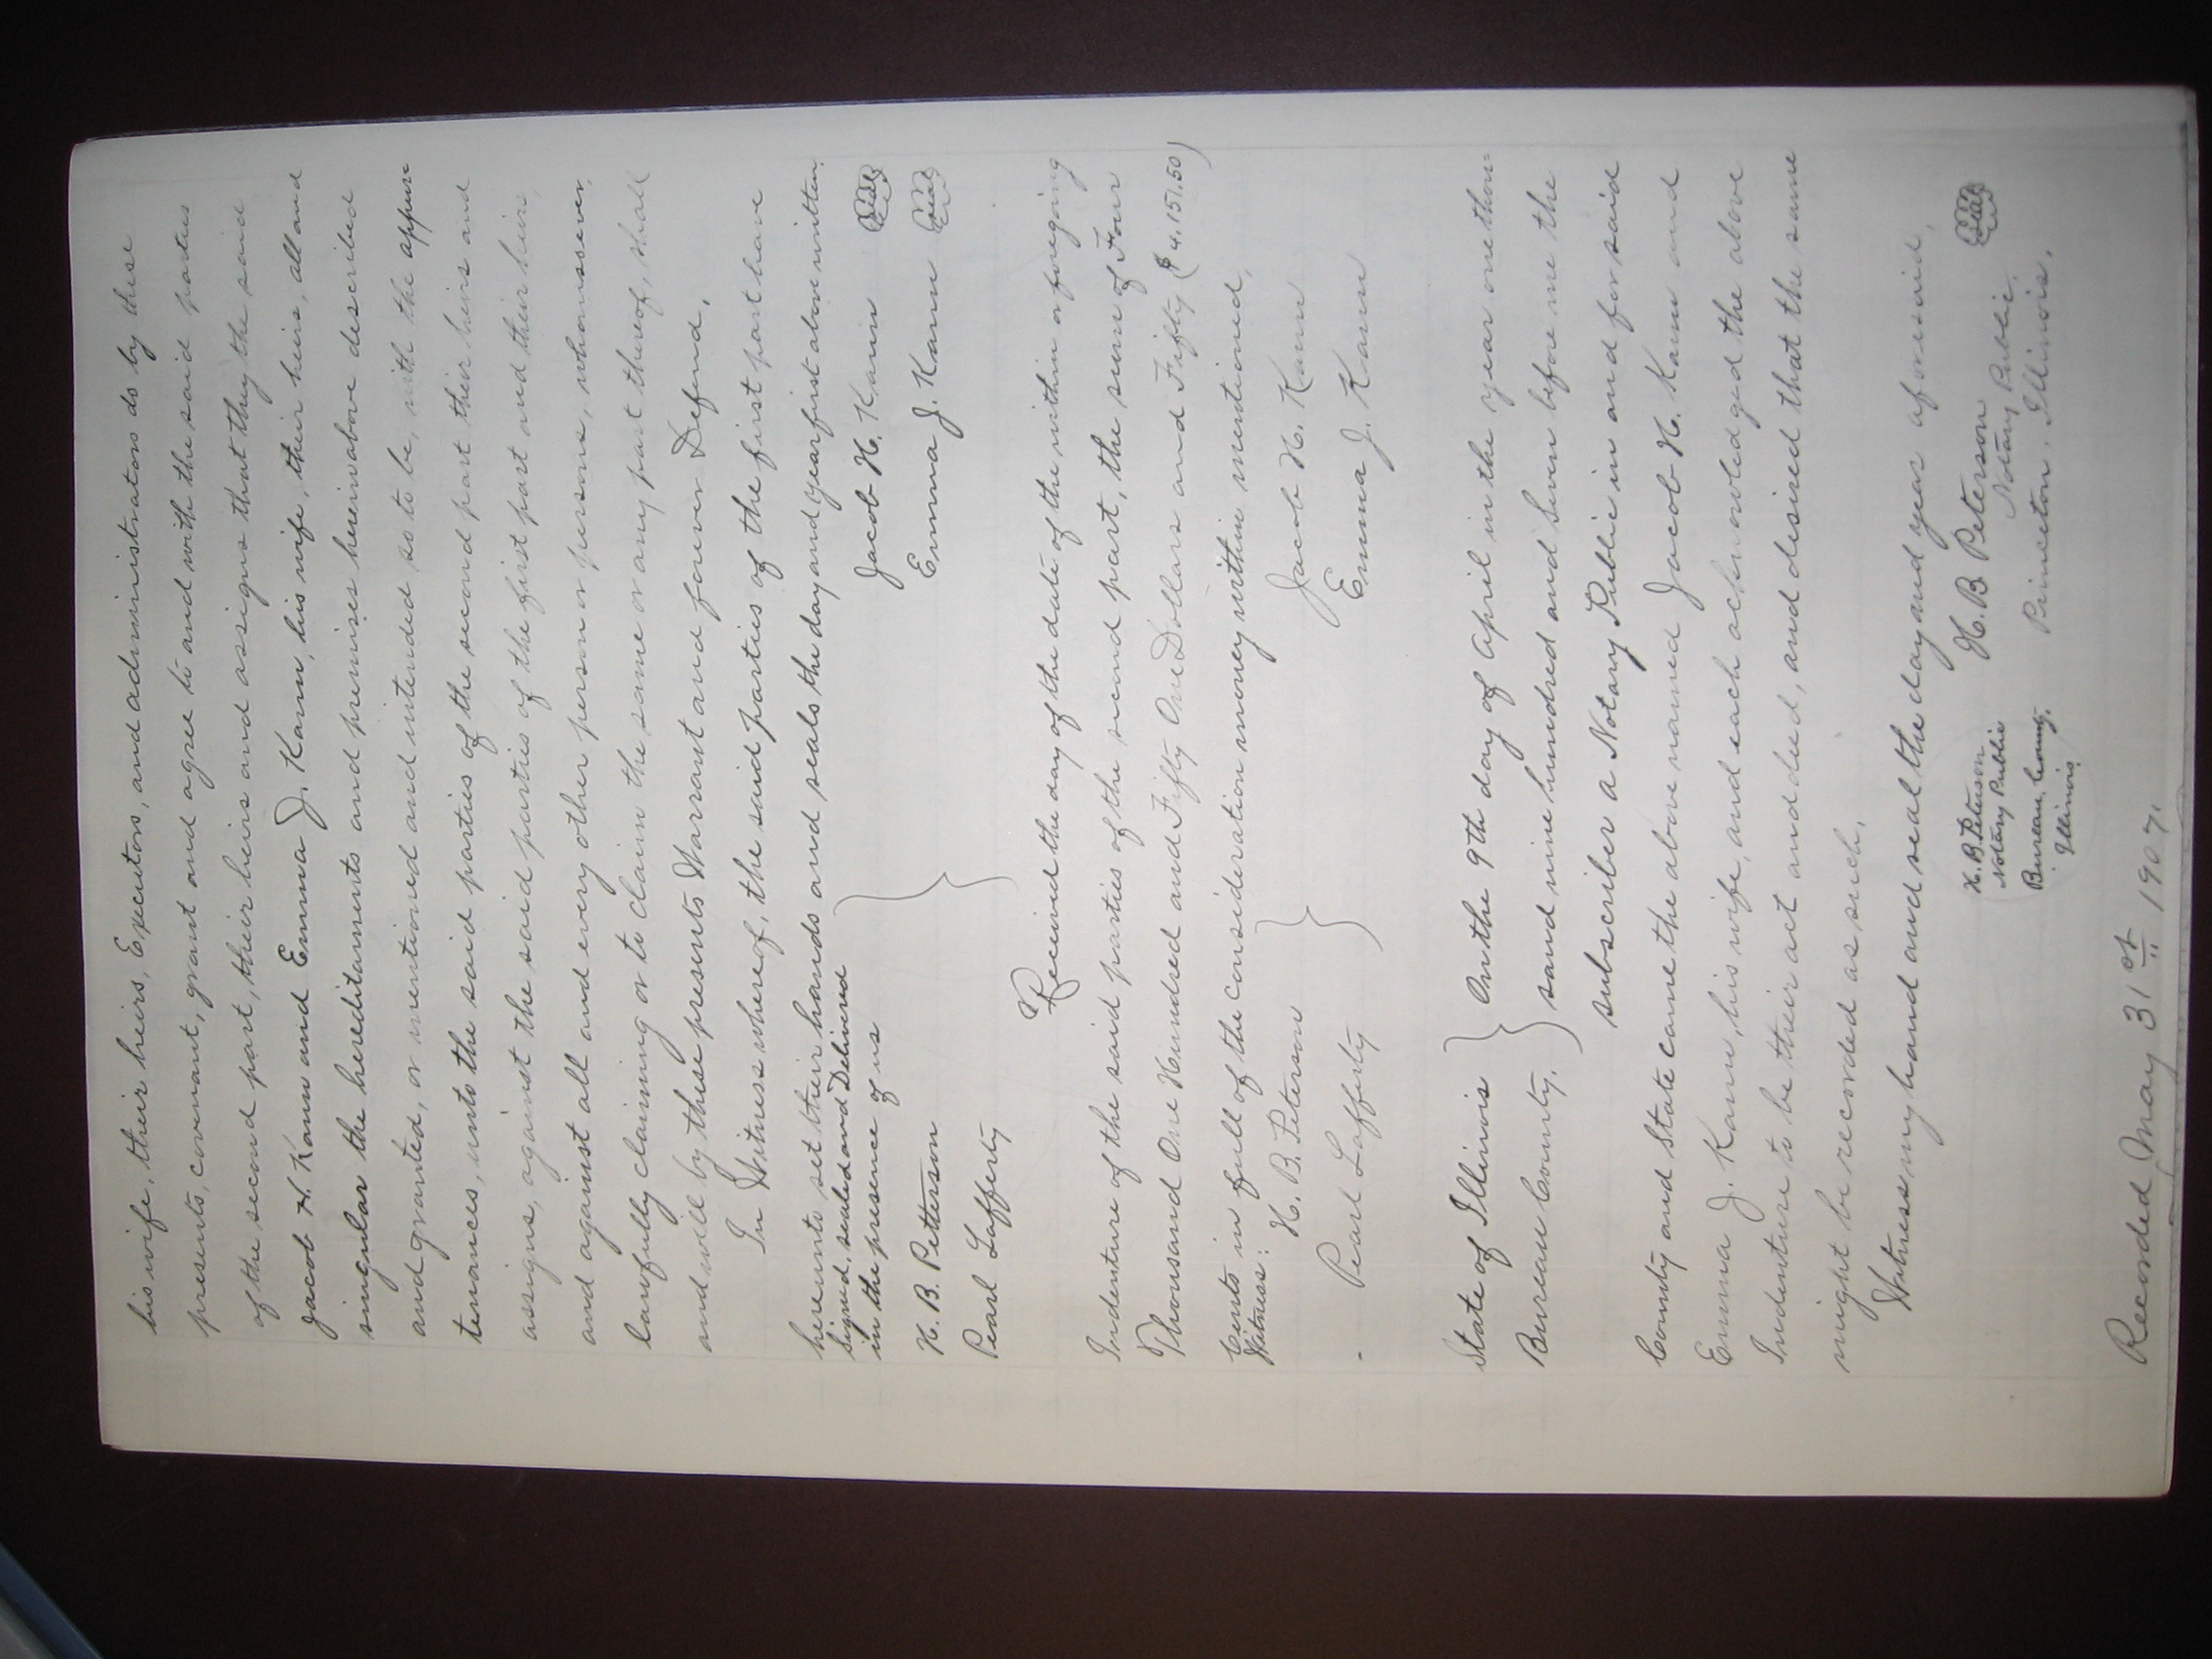 his wife, their heirs, Executors, and administrators do by these
presents, covenant, grant and agree to and with the said parties
of the second part, their heirs and assigns that they the said
Jacob H. Kann and Emma J. Kann, his wife, their heirs, all and
singular the hereditaments and premises hereinabove described
and granted, or mentioned and intended so to be, with the appur
tenances, unto the said parties of the second part their heirs and
assigns, against the said parties of the first part and their heirs,
and against all and every other person or persons, whomsoever,
lawfully claiming or to claim the same or any part thereof, shall
and will by these presents Warrant and forever Defend.
In Witness whereof, the said parties of the first part have
hereunto set their hands and seals the day and year first above written.
Signed, sealed and Delivered
in the presence of us
Jacob H. Kann seal
H. B. Petterson
Emma J. Kann seal
Pearl Lafferty
Received the day of the date of the within or foregoing
Indenture of the said parties of the second part, the sum of Four
Thousand One Hundred and Fifty One Dollars and Fifty ($4,151.50)
Cents in full of the consideration money within mentioned,
Witness:
H. B. Peterson
Jacob H. Kann
Pearl Lafferty
Emma J. Kann
State of Illinois
Bureau County.
On the 9th day of April in the year one thou
sand nine hundred and seven before me the
subscriber a Notary Public in and for said
County and State came the above named Jacob H. Kann and
Emma J. Kann, his wife, and each acknowledged the above
Indenture to be their act and deed, and desired that the same
might be recorded as such.
Witness my hand and seal the day and year aforesaid,
H. B. Peterson
Notary Public
Bureau County,
Illinois
H. B Peterson seal
Notary Public,
Princeton, Illinois.
Recorded May 31st 1907.